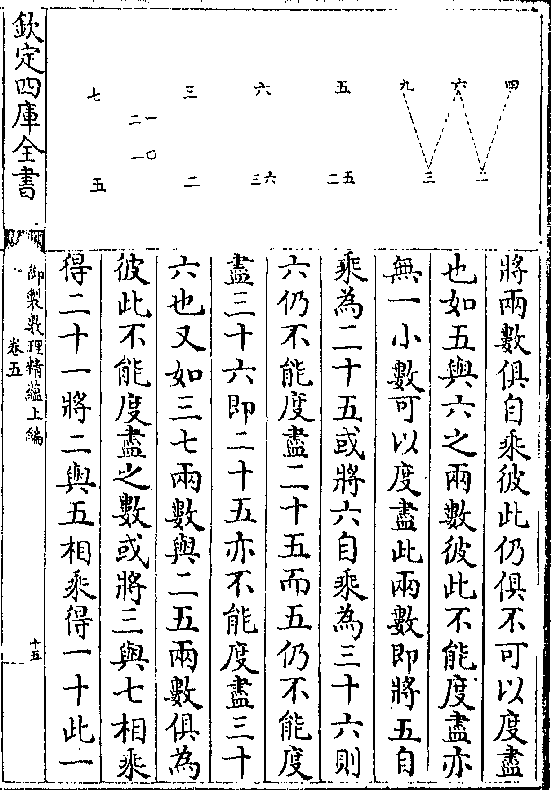 四　六　九　五　六　三　七
二　三　二五　三六　二　五
二一
一〇
將兩數俱自乘彼此仍俱不可以度盡
也如五與六之兩數彼此不能度盡亦
無一小數可以度盡此兩數即將五自
乘為二十五或將六自乘為三十六則
六仍不能度盡二十五而五仍不能度
盡三十六即二十五亦不能度盡三十
六也又如三七兩數與二五兩數俱為
彼此不能度盡之數或將三與七相乘
得二十一將二與五相乘得一十此一
欽定四庫全書
御製數理精蘊上編
卷五
十五